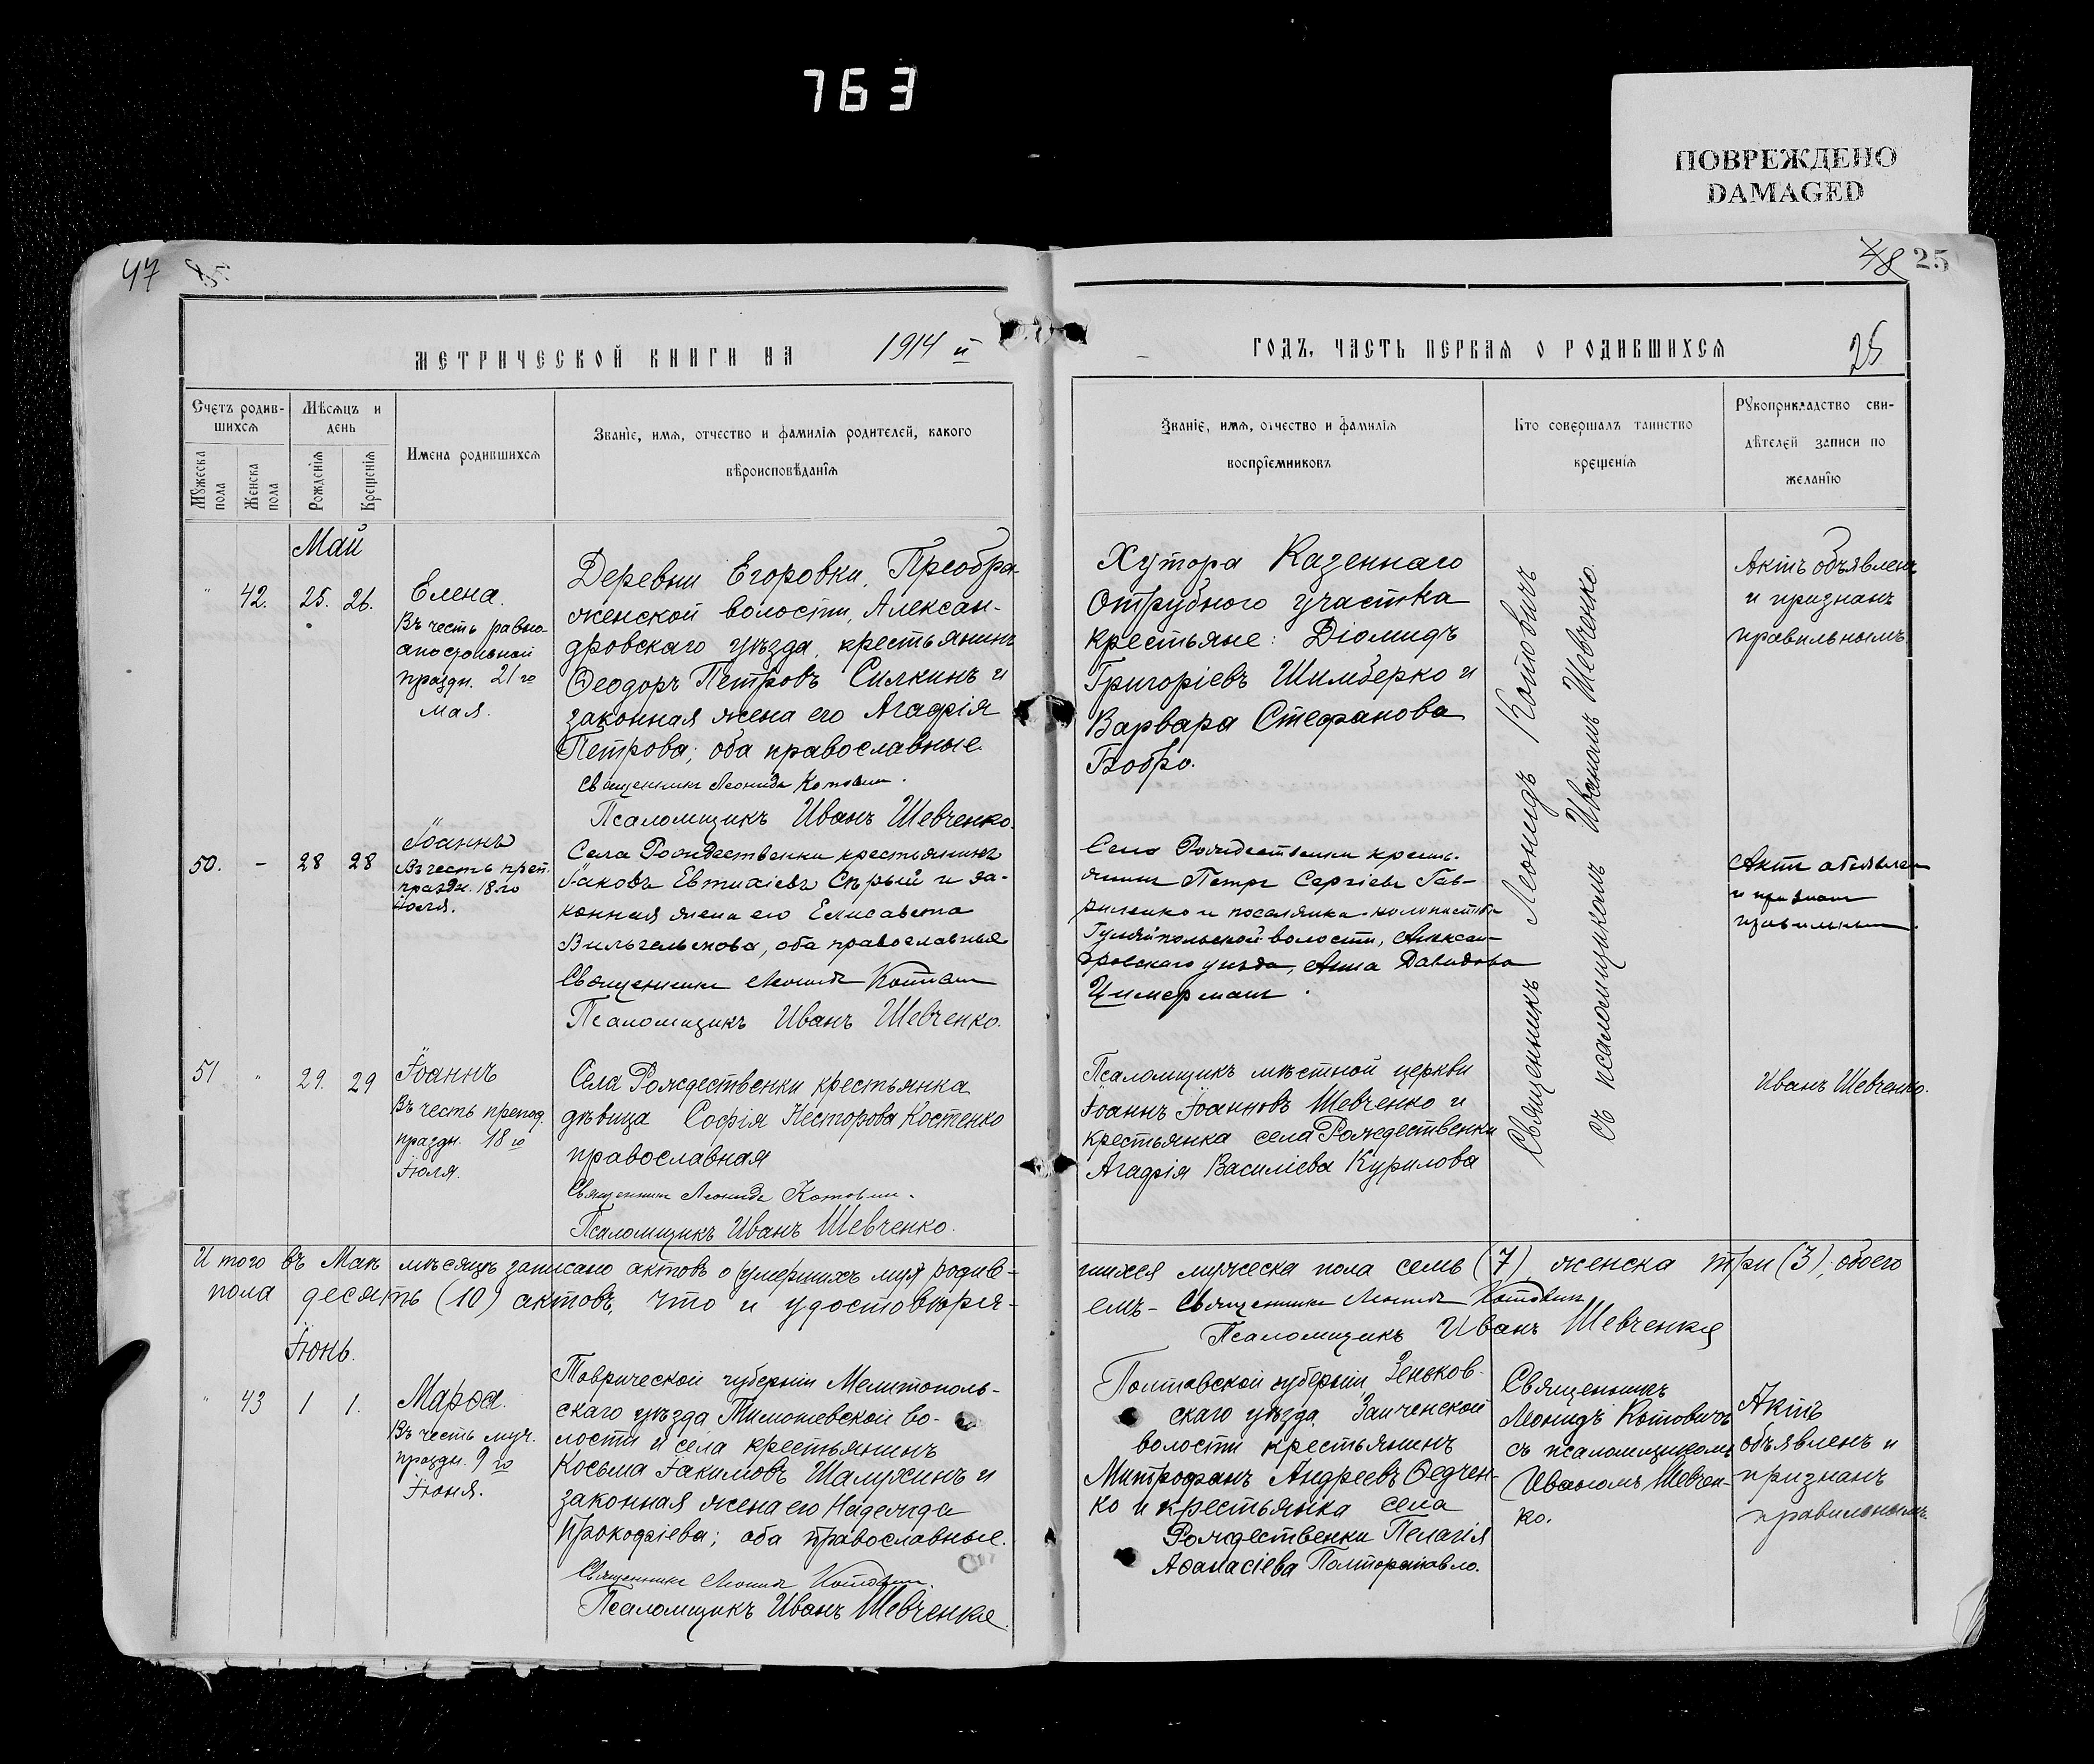 763
ПОВРЕЖДЕНО
DAMAGED
47
85.
МЕТРИЧЕСКОЙ КНИГИ НА 1914 й
Счетъ родив-
шихся
Мѣсяцъ и
день
Имена родившихся
Званіе, имя, отчество и фамилія родителей, какого
вѣроисповѣданія
Мужеска
пола
Женска
пола
Рожденія
Крещенія
Май
" 42. 25. 26.
Елена.
Въ честь равно-
апостольной
праздн. 21 го
мая.
Деревни Егоровки, Преобра-
женской волости, Алексан-
дровскаго уѣзда, крестьянинъ
Ѳеодоръ Петровъ Силкинъ и
законная жена его Агафія
Петрова; оба православные.
Священникъ Леонидъ Котович.
Псаломщикъ Иванъ Шевченко.
50. - 28 28
Іоаннъ
Въ честь преп.
праздн. 18 го
Іюля.
Села Рождественки крестьянинъ
Іаковъ Евтихіевъ Сѣрый и за-
конная жена его Елисавета
Вильгельмова, оба православные
Священникъ Леонидъ Котович
Псаломщикъ Иванъ Шевченко.
51 " 29. 29
Іоаннъ
Въ честь препод.
праздн. 18 го
Іюля.
Села Рождественки крестьянка
дѣвица Софія Несторова Костенко
православная
Священникъ Леонидъ Котович.
Псаломщикъ Иванъ Шевченко.
Итого въ Маѣ мѣсяцѣ записано актовъ о умершихъ муж родив-
пола десять (10) актовъ, что и удостовѣря-
Іюнь.
" 43 1 1.
Марѳа.
Въ честь муч.
праздн. 9 го
Іюня.
Таврической губерніи Мелитополь-
скаго уѣзда Тимошевской во-
лости и села крестьянинъ
Косьма Іакимовъ Шалухинъ и
законная жена его Надежда
Прокофіева; оба православные.
Священникъ Леонидъ Котович.
Псаломщикъ Иванъ Шевченко.
48
25
ГОДЪ, ЧАСТЬ ПЕРВАЯ О РОДИВШИХСЯ
25
Званіе, имя, отчество и фамилія
воспріемниковъ
Кто совершалъ таинство
крещенія
Рукоприкладство сви-
дѣтелей записи по
желанію
Хутора Казеннаго
Отрубного участка
крестьяне: Діомидъ
Григоріевъ Шимберко и
Варвара Стефанова
Бобро.
Священникъ Леонидъ Котовичъ
съ псаломщикомъ Иваномъ Шевченко.
Актъ объявленъ
и признанъ
правильнымъ.
Села Рождественки кресть-
янинъ Петръ Сергіевъ Гав-
риленко и поселянка-колонистка
Гуляйпольской волости, Алексан-
дровскаго уѣзда, Анна Давидова
Цимерманъ.
Актъ объявлен
и признан
правильным.
Псаломщикъ мѣстной церкви
Іоаннъ Іоанновъ Шевченко и
крестьянка села Рождественки
Агафія Василіева Курилова
Иванъ Шевченко.
шихся мужеска пола семь (7), женска три (3), обоего
емъ - Священникъ Леонидъ Котович
Псаломщикъ Иванъ Шевченко
Полтавской губерніи, Зеньков-
скаго уѣзда, Заиченской
волости крестьянинъ
Митрофанъ Андреевъ Ѳедчен-
ко и крестьянка села
Рождественки Пелагія
Аѳанасіева Полторапавло.
Священникъ
Леонидъ Котовичъ
съ псаломщикомъ
Иваномъ Шевчен-
ко.
Актъ
объявленъ и
признанъ
правильнымъ.